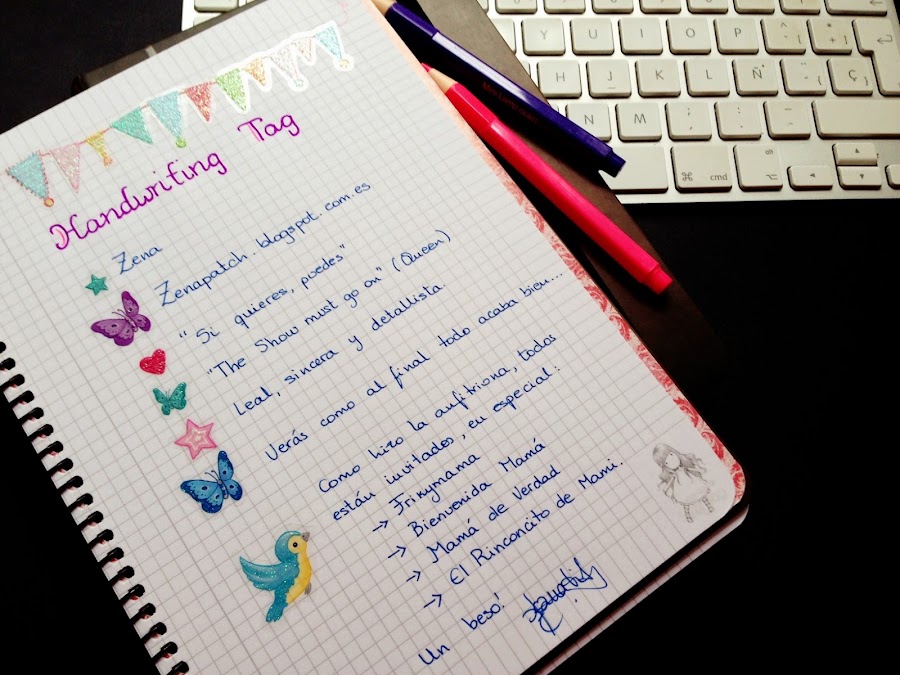 Handwriting Tag
Zena
Zenapatch.blogspot.com.es
"Si quieres, puedes"
"The Show must go on" (Queen)
Leal, sincera y detallista.
Verás como al final todo acaba bien...
Como hizo la anfitriona, todos
están invitados, en especial:
→ Frikymama
→ Bienvenida Mamá
→ Mamá de Verdad
→ El Rinconcito de Mami.
Un beso!
Y U I O P
H J K L Ñ Ç
N M , ; . : - _
⌘ cmd alt